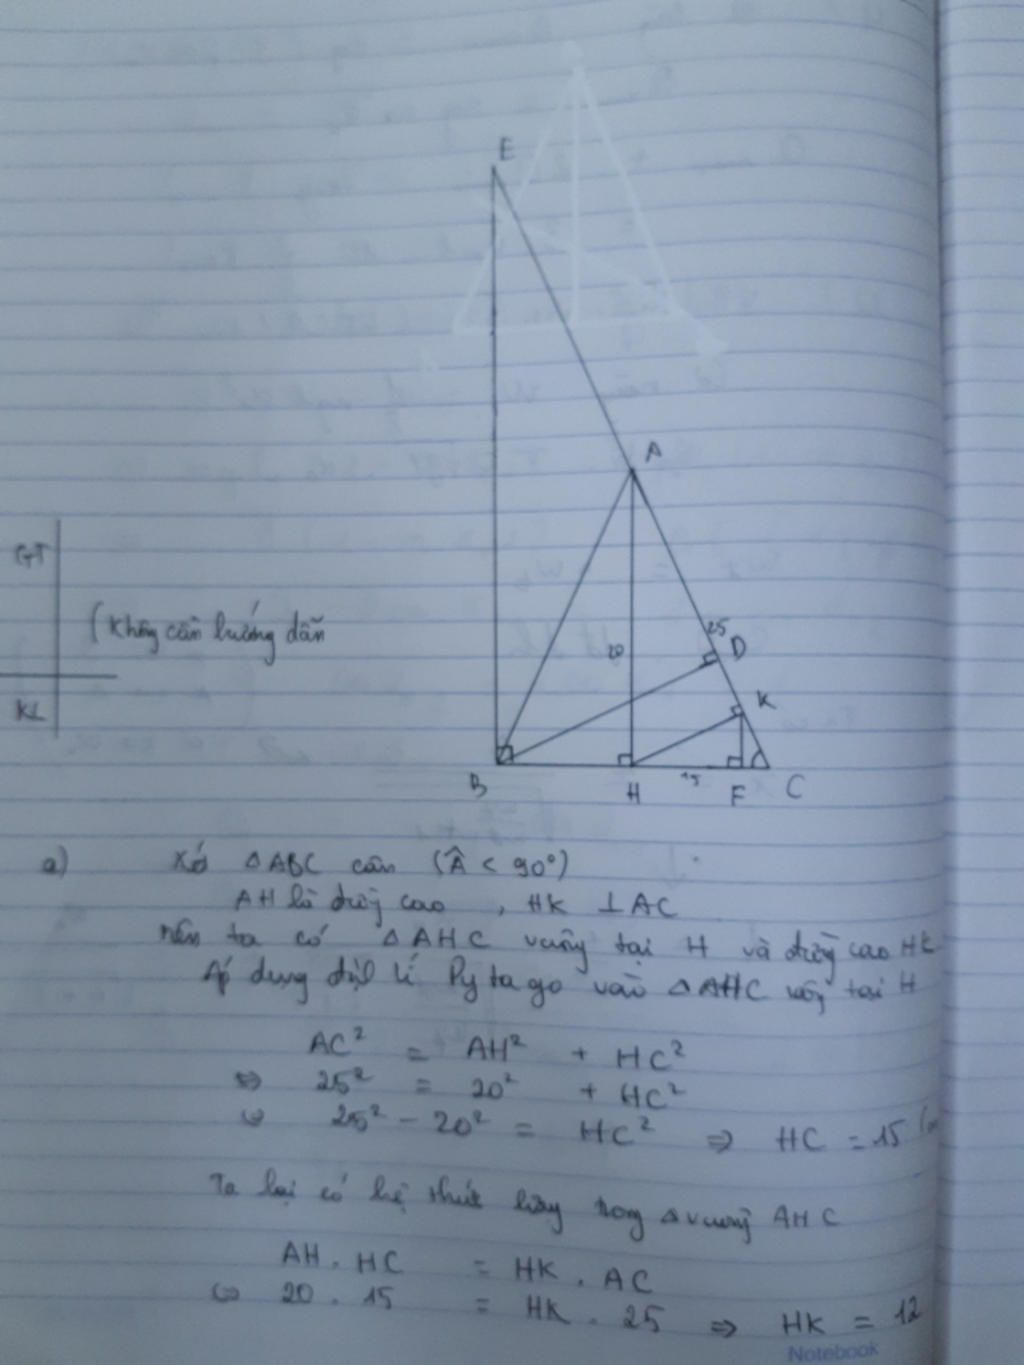 E
A
GT
(Không cần hướng dẫn
25
D
20
K
KL
B
H
15
F
C
a) Xét △ABC cân (Â < 90°)
AH là đường cao , HK ⊥ AC
nên ta có △AHC vuông tại H và đường cao HK
Áp dụng định lí Pytago vào △AHC vuông tại H
AC² = AH² + HC²
⇔ 25² = 20² + HC²
⇔ 25² - 20² = HC² ⇒ HC = 15
Ta lại có hệ thức lượng trong △vuông AHC
AH . HC = HK . AC
⇔ 20 . 15 = HK . 25 ⇒ HK = 12
Notebook